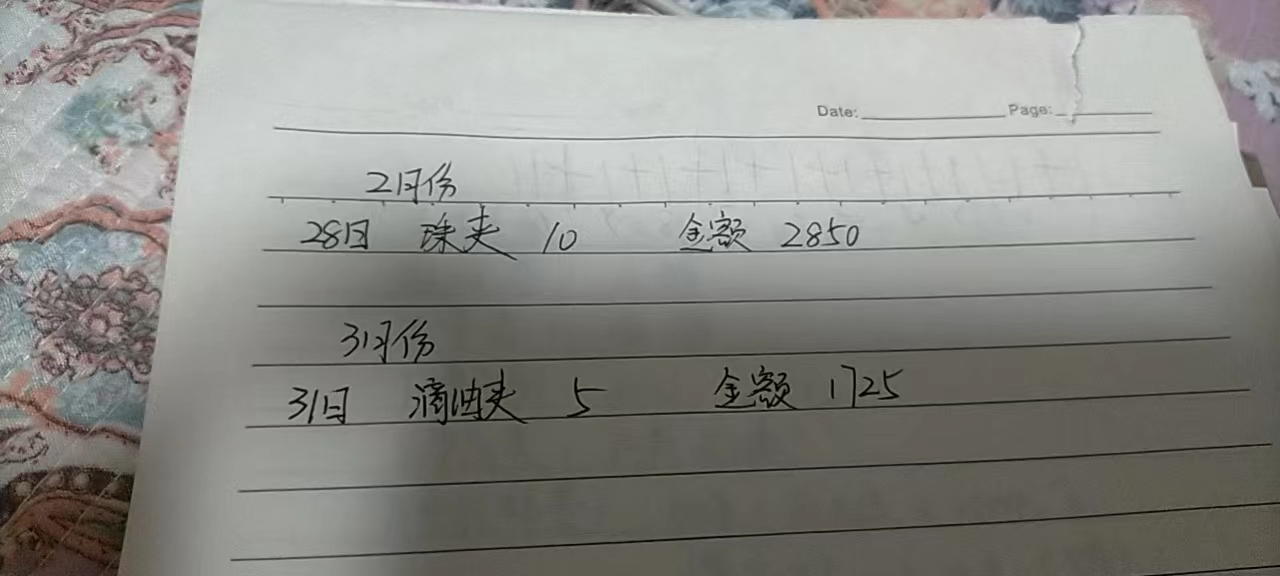 Date: Page:
2月份
28日 珠夹 10 金额 2850
3月份
31日 滴油夹 5 金额 1725